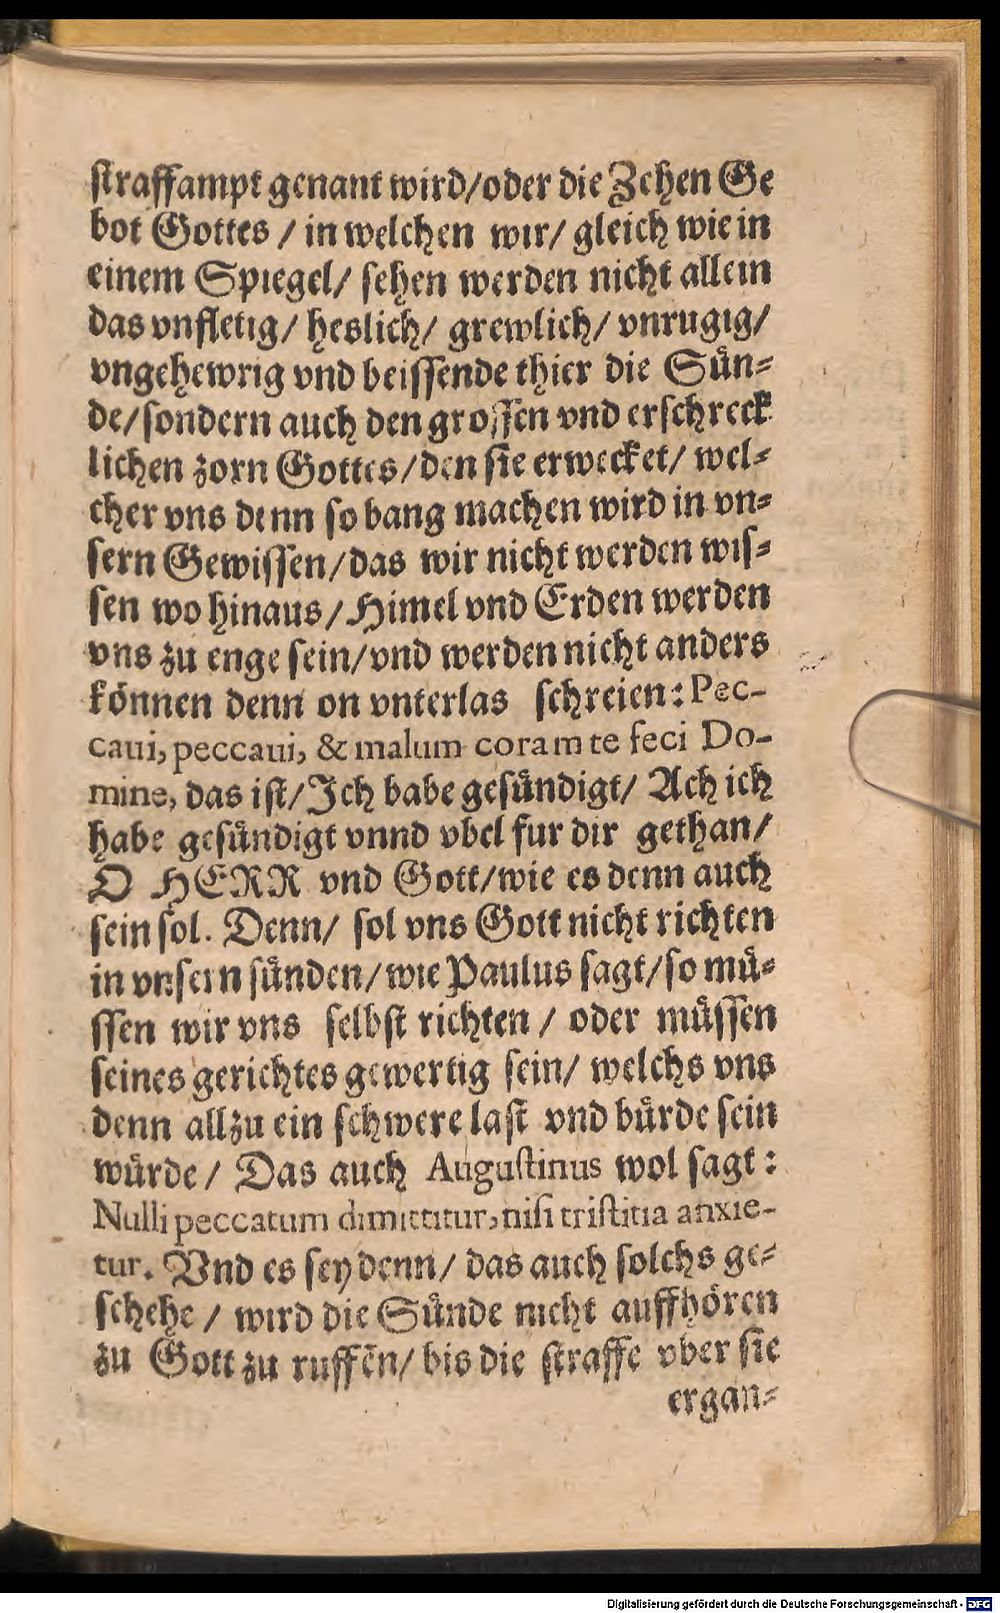 straffampt genant wird/oder die Zehen Ge
bot Gottes / in welchen wir/ gleich wie in
einem Spiegel/ sehen werden nicht allein
das vnfletig/ heslich/ grewlich/ vnrugig/
vngehewrig vnd beissende thier die Sün-
de/sondern auch den grossen vnd erschreck
lichen zorn Gottes/den sie erwecket/ wel-
cher vns denn so bang machen wird in vn-
sern Gewissen/das wir nicht werden wis-
sen wo hinaus/Himel vnd Erden werden
vns zu enge sein/vnd werden nicht anders
können denn on vnterlas schreien: Pec-
caui, peccaui, & malum coram te feci Do-
mine, das ist/Ich babe gesündigt/ Ach ich
habe gesündigt vnnd vbel fur dir gethan/
O HERR vnd Gott/wie es denn auch
sein sol. Denn/ sol vns Gott nicht richten
in vnsern sünden/wie Paulus sagt/so mü-
ssen wir vns selbst richten / oder müssen
seines gerichtes gewertig sein/ welchs vns
denn allzu ein schwere last vnd bürde sein
würde/ Das auch Augustinus wol sagt:
Nulli peccatum dimittitur, nisi tristitia anxie-
tur. Vnd es sey denn/ das auch solchs ge-
schehe / wird die Sünde nicht auffhören
zu Gott zu ruffen/ bis die straffe vber sie
ergan-
Digitalisierung gefördert durch die Deutsche Forschungsgemeinschaft - DFG